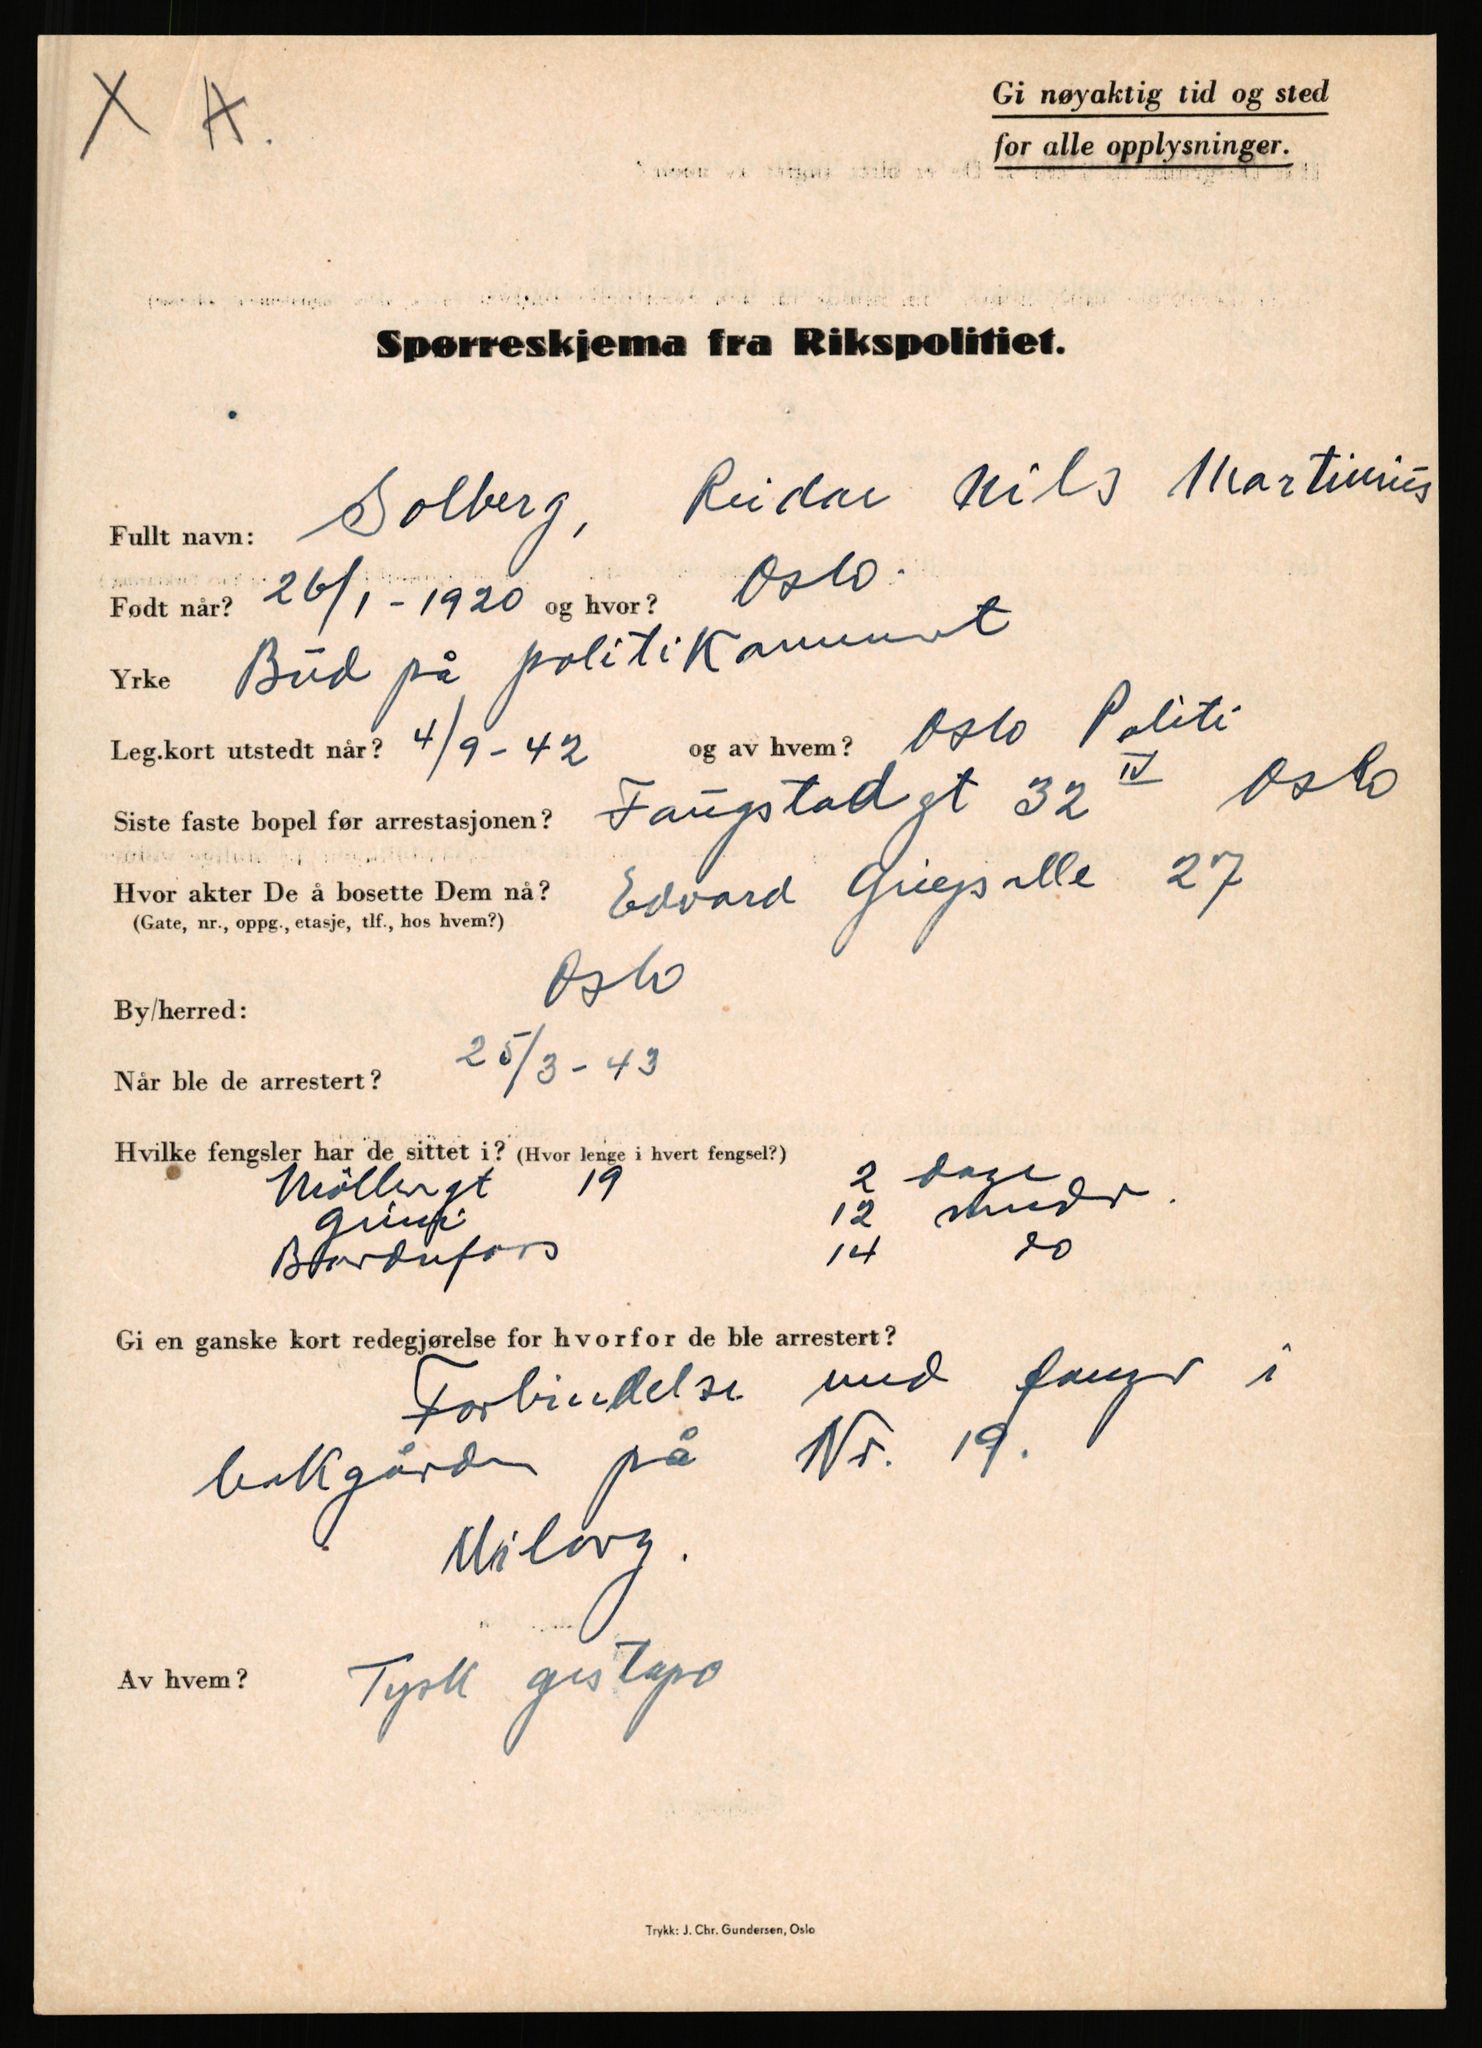 X A.
Gi nøyaktig tid og sted
for alle opplysninger.
Spørreskjema fra Rikspolitiet.
Fullt navn: Solberg, Reidar Nils Martinius
Født når? 26/1-1920 og hvor? Oslo.
Yrke Bud på politikammeret
Leg.kort utstedt når? 4/9-42 og av hvem? Oslo Politi
Siste faste bopel før arrestasjonen? Faugstadgt 32 IV Oslo
Hvor akter De å bosette Dem nå? Edvard Griegs alle 27
(Gate, nr., oppg., etasje, tlf., hos hvem?)
By/herred: Oslo
Når ble de arrestert? 25/3-43
Hvilke fengsler har de sittet i? (Hvor lenge i hvert fengsel?)
Möllergt 19 2 dage
Grini 12 mndr.
Bardufoss 14 do
Gi en ganske kort redegjørelse for hvorfor de ble arrestert?
Forbindelse med fanger i
bakgården på Nr. 19.
Milorg.
Av hvem? Tysk gestapo
Trykk: J. Chr. Gundersen, Oslo